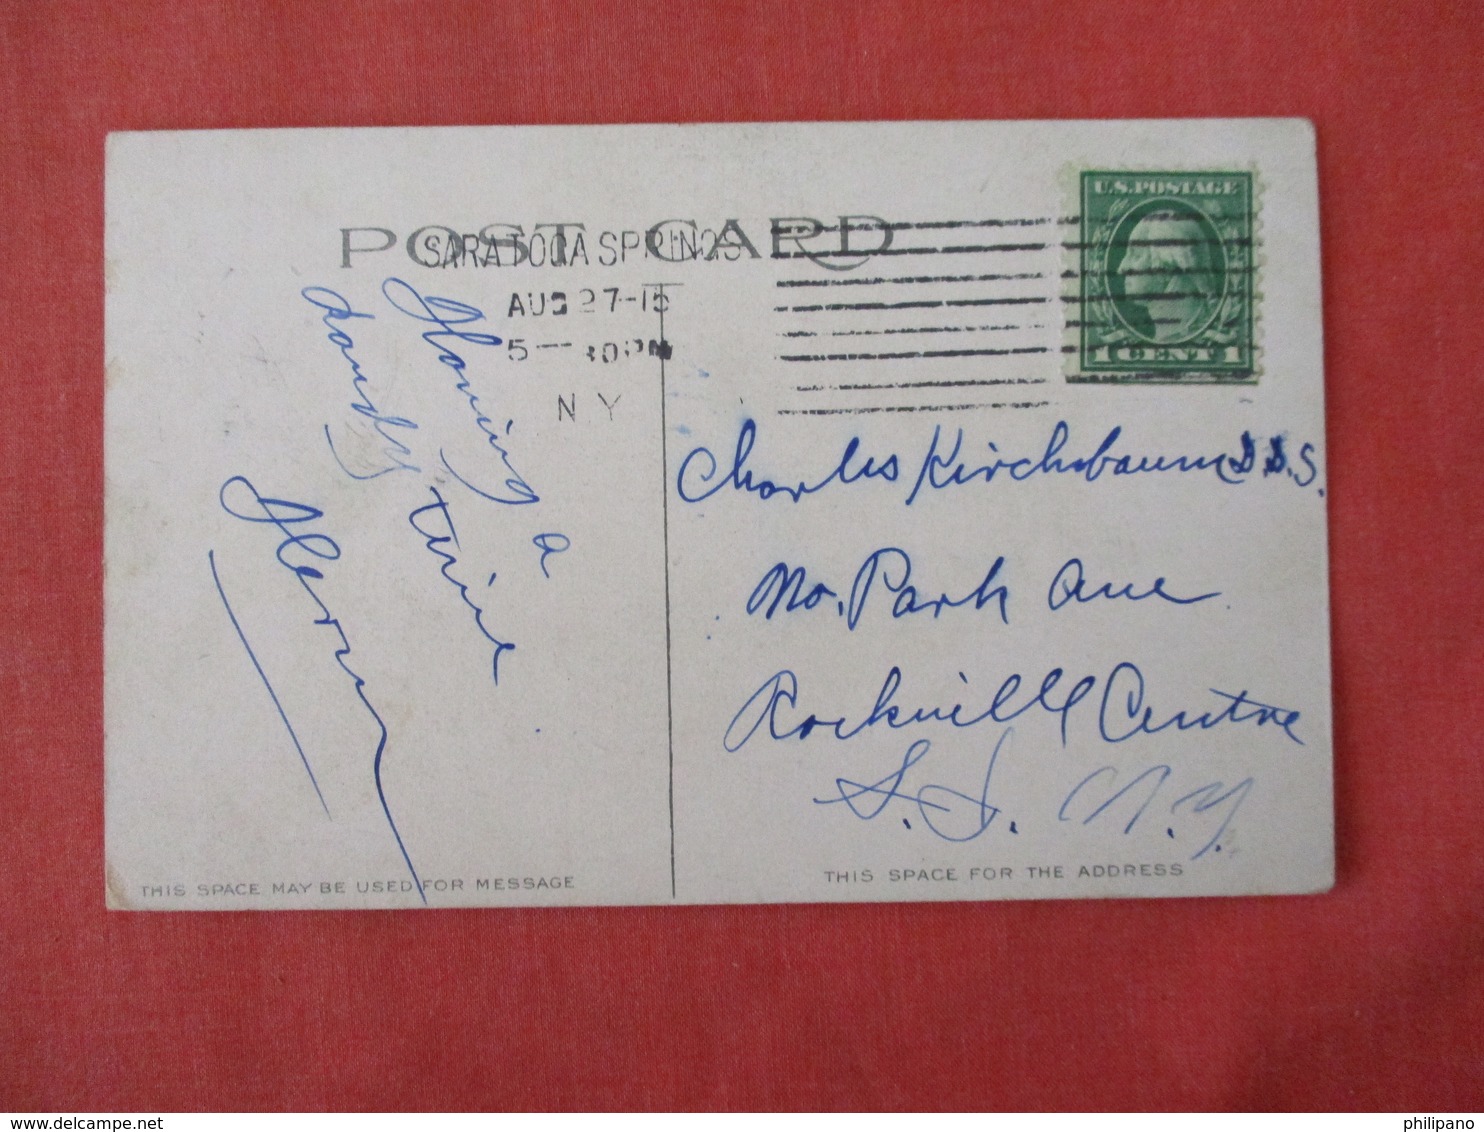 POST CARD
SARATOGA SPRINGS
AUG 27-15
5-30PM
N Y
U.S. POSTAGE
1 CENT 1
Having a
dandy time
Charles Kirchbaum D.D.S.
No. Park Ave
Rockville Centre
L.I. N.Y.
THIS SPACE MAY BE USED FOR MESSAGE
THIS SPACE FOR THE ADDRESS
philipano